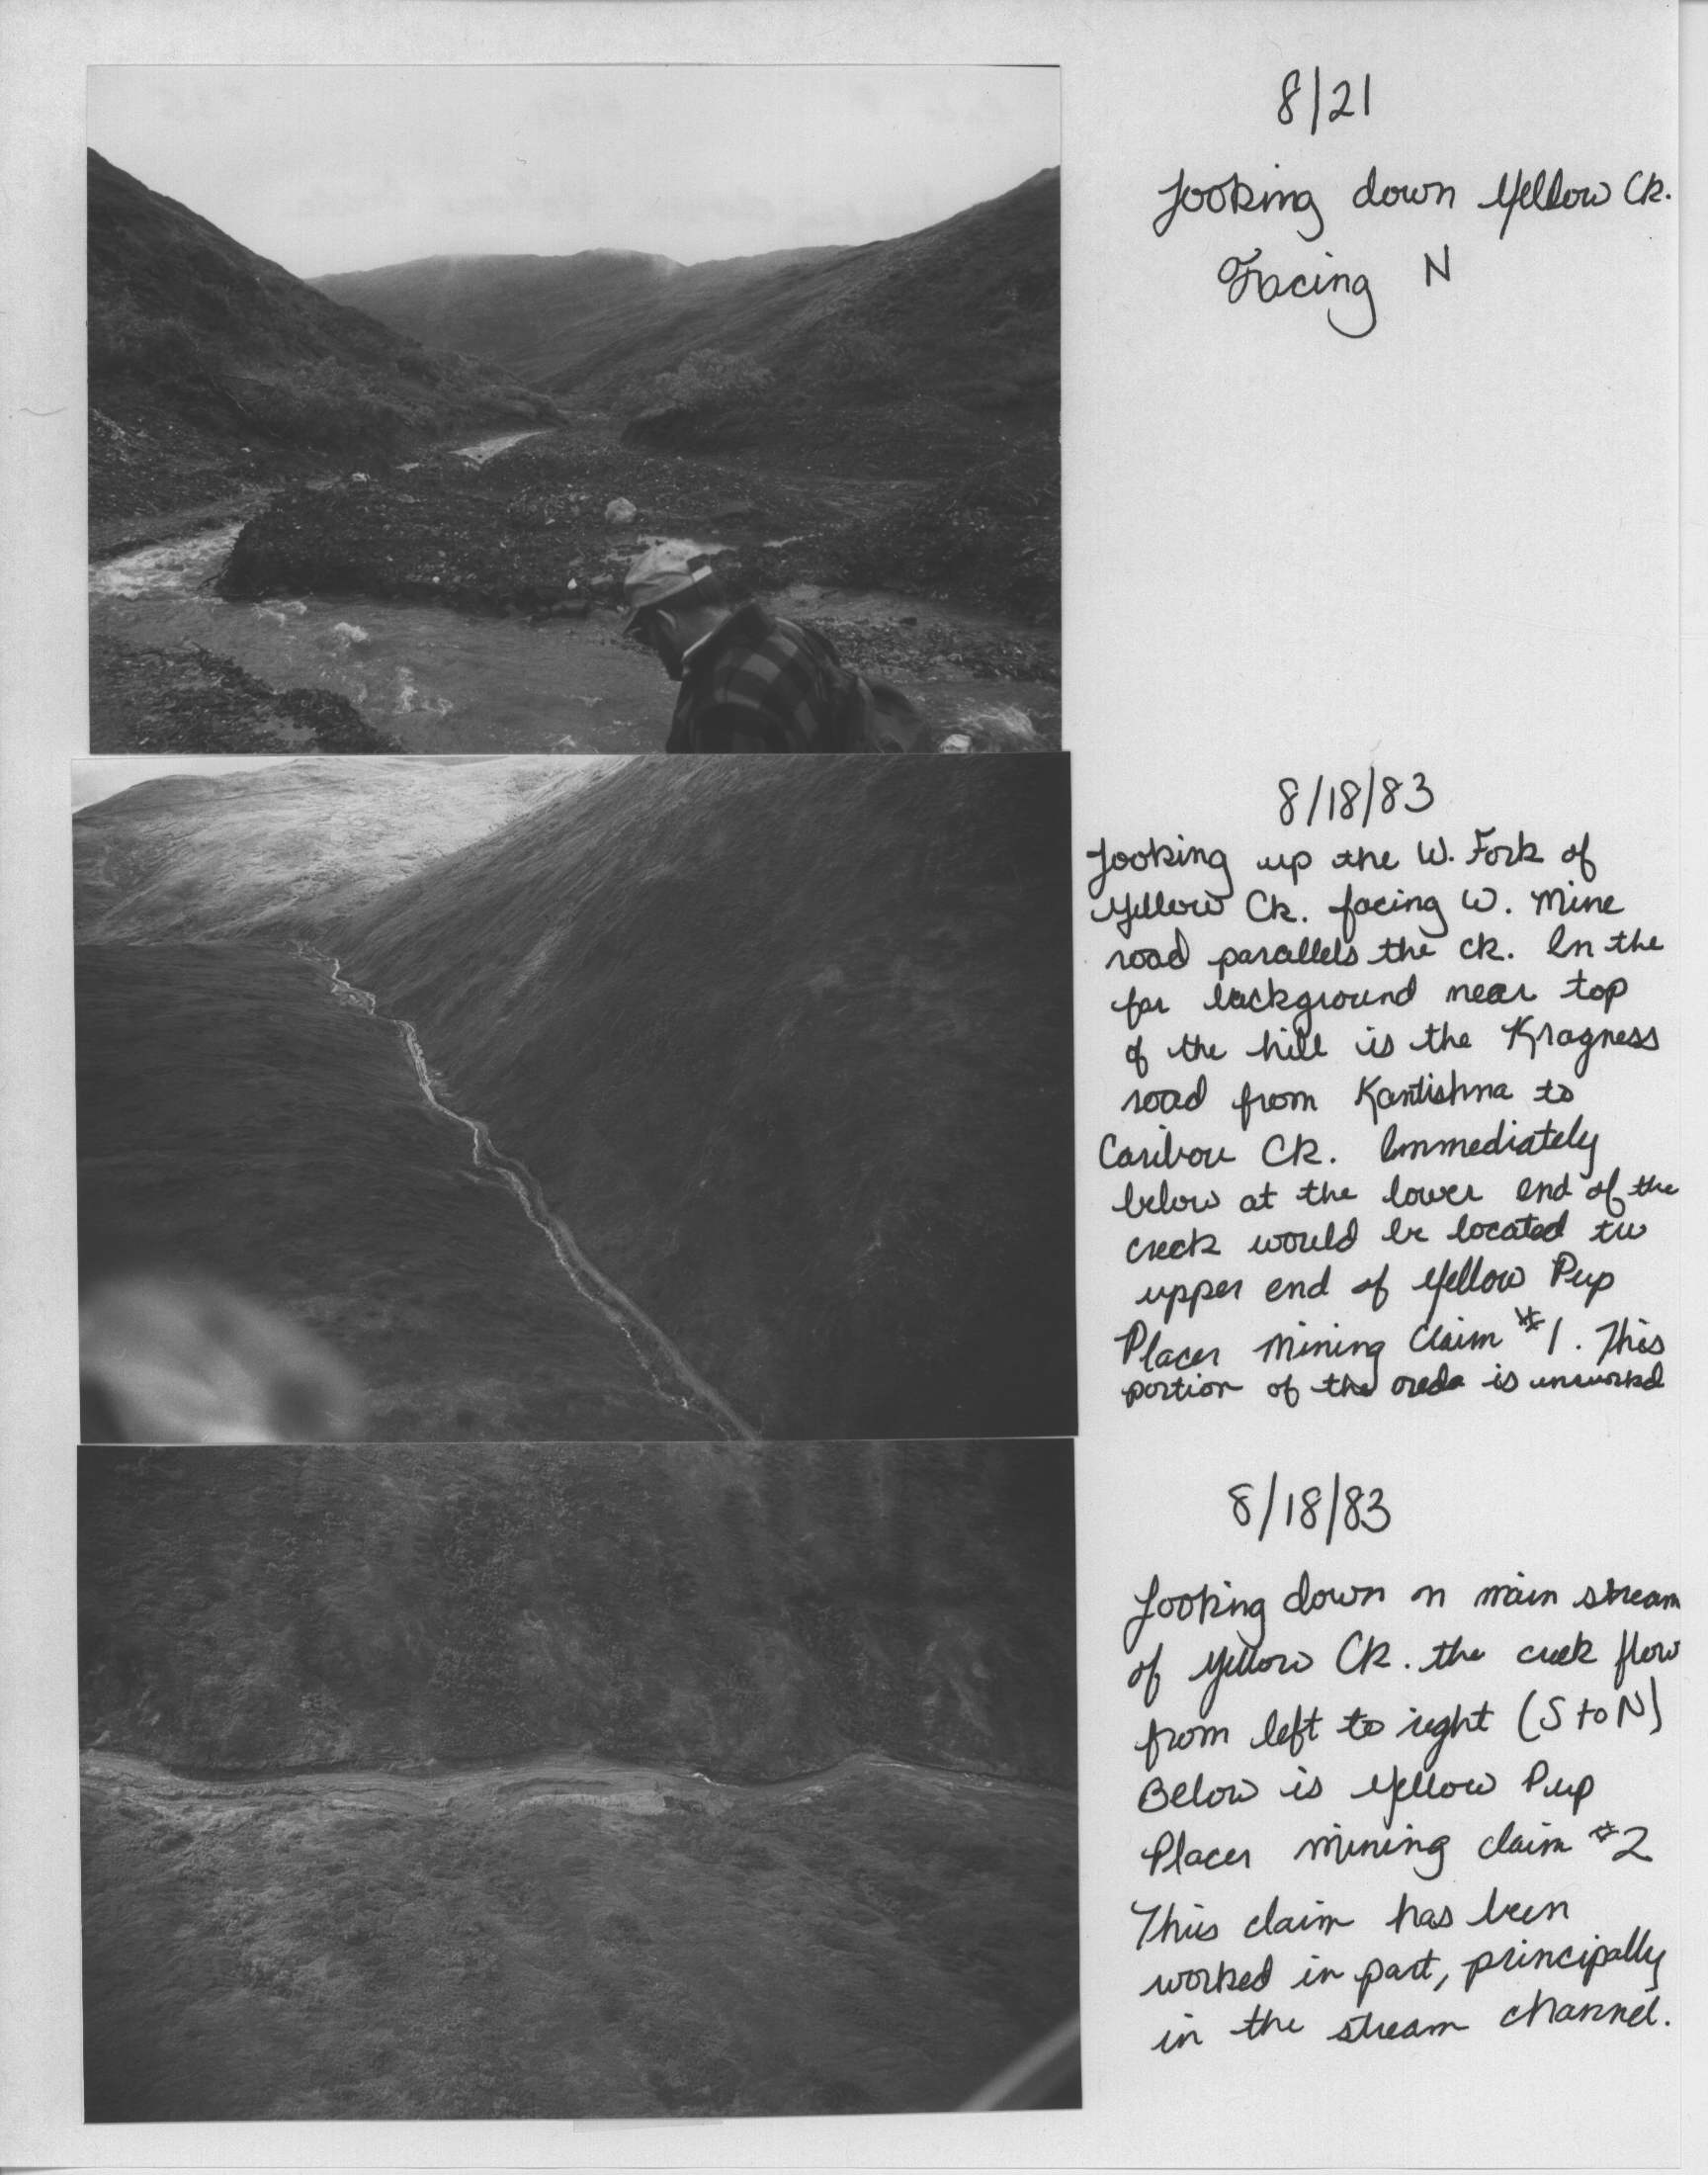 8/21
Looking down Yellow Ck.
Facing N
8/18/83
Looking up the W. Fork of
Yellow Ck. facing W. Mine
road parallels the ck. In the
far background near top
of the hill is the Kragness
road from Kantishna to
Caribou Ck. Immediately
below at the lower end of the
creek would be located
upper end of Yellow Pup
Placer Mining Claim #1. This
portion of the is unworked
8/18/83
Looking down on main stream
of Yellow Ck. the creek flow
from left to right (S to N)
Below is Yellow Pup
Placer mining claim #2
This claim has been
worked in part, principally
in the stream channel.